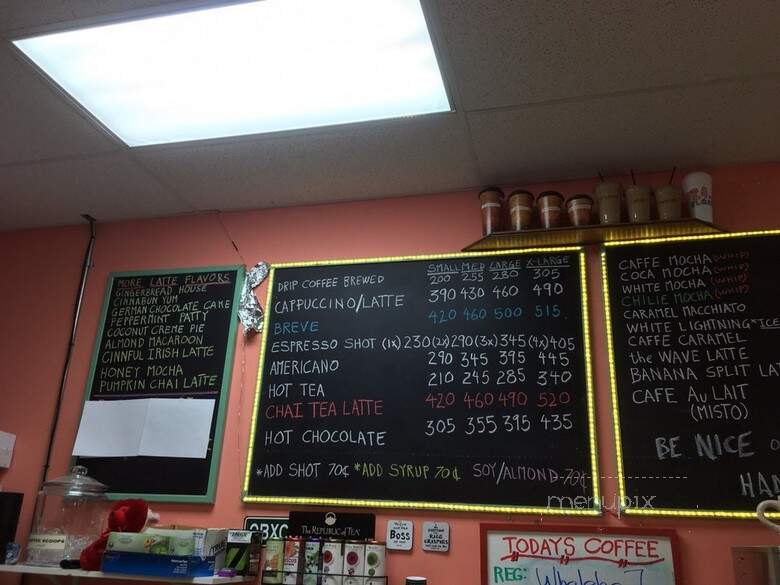 MORE LATTE FLAVORS
GINGERBREAD HOUSE
CINNABUN YUM
GERMAN CHOCOLATE CAKE
PEPPERMINT PATTY
COCONUT CREME PIE
ALMOND MACAROON
CINNFUL IRISH LATTE
HONEY MOCHA
PUMPKIN CHAI LATTE
SMALL MED LARGE X-LARGE
DRIP COFFEE BREWED 200 255 280 305
CAPPUCCINO/LATTE 390 430 460 490
BREVE 420 460 500 515
ESPRESSO SHOT (1x) 230 (2x) 290 (3x) 345 (4x) 405
AMERICANO 290 345 395 445
HOT TEA 210 245 285 340
CHAI TEA LATTE 420 460 490 520
HOT CHOCOLATE 305 355 395 435
*ADD SHOT 70¢ *ADD SYRUP 70¢ SOY/ALMOND-70¢
CAFFE MOCHA (WHIP)
COCA MOCHA (WHIP)
WHITE MOCHA (WHIP)
CHILIE MOCHA (WHIP)
CARAMEL MACCHIATO
WHITE LIGHTNING *ICE
CAFFE CARAMEL
the WAVE LATTE
BANANA SPLIT LAT
CAFE AU LAIT
(MISTO)
BE NICE
HAN
menupix
OBXC
The REPUBLIC of TEA
Boss
RICE
KRISPIES
TODAYS COFFEE
REG: